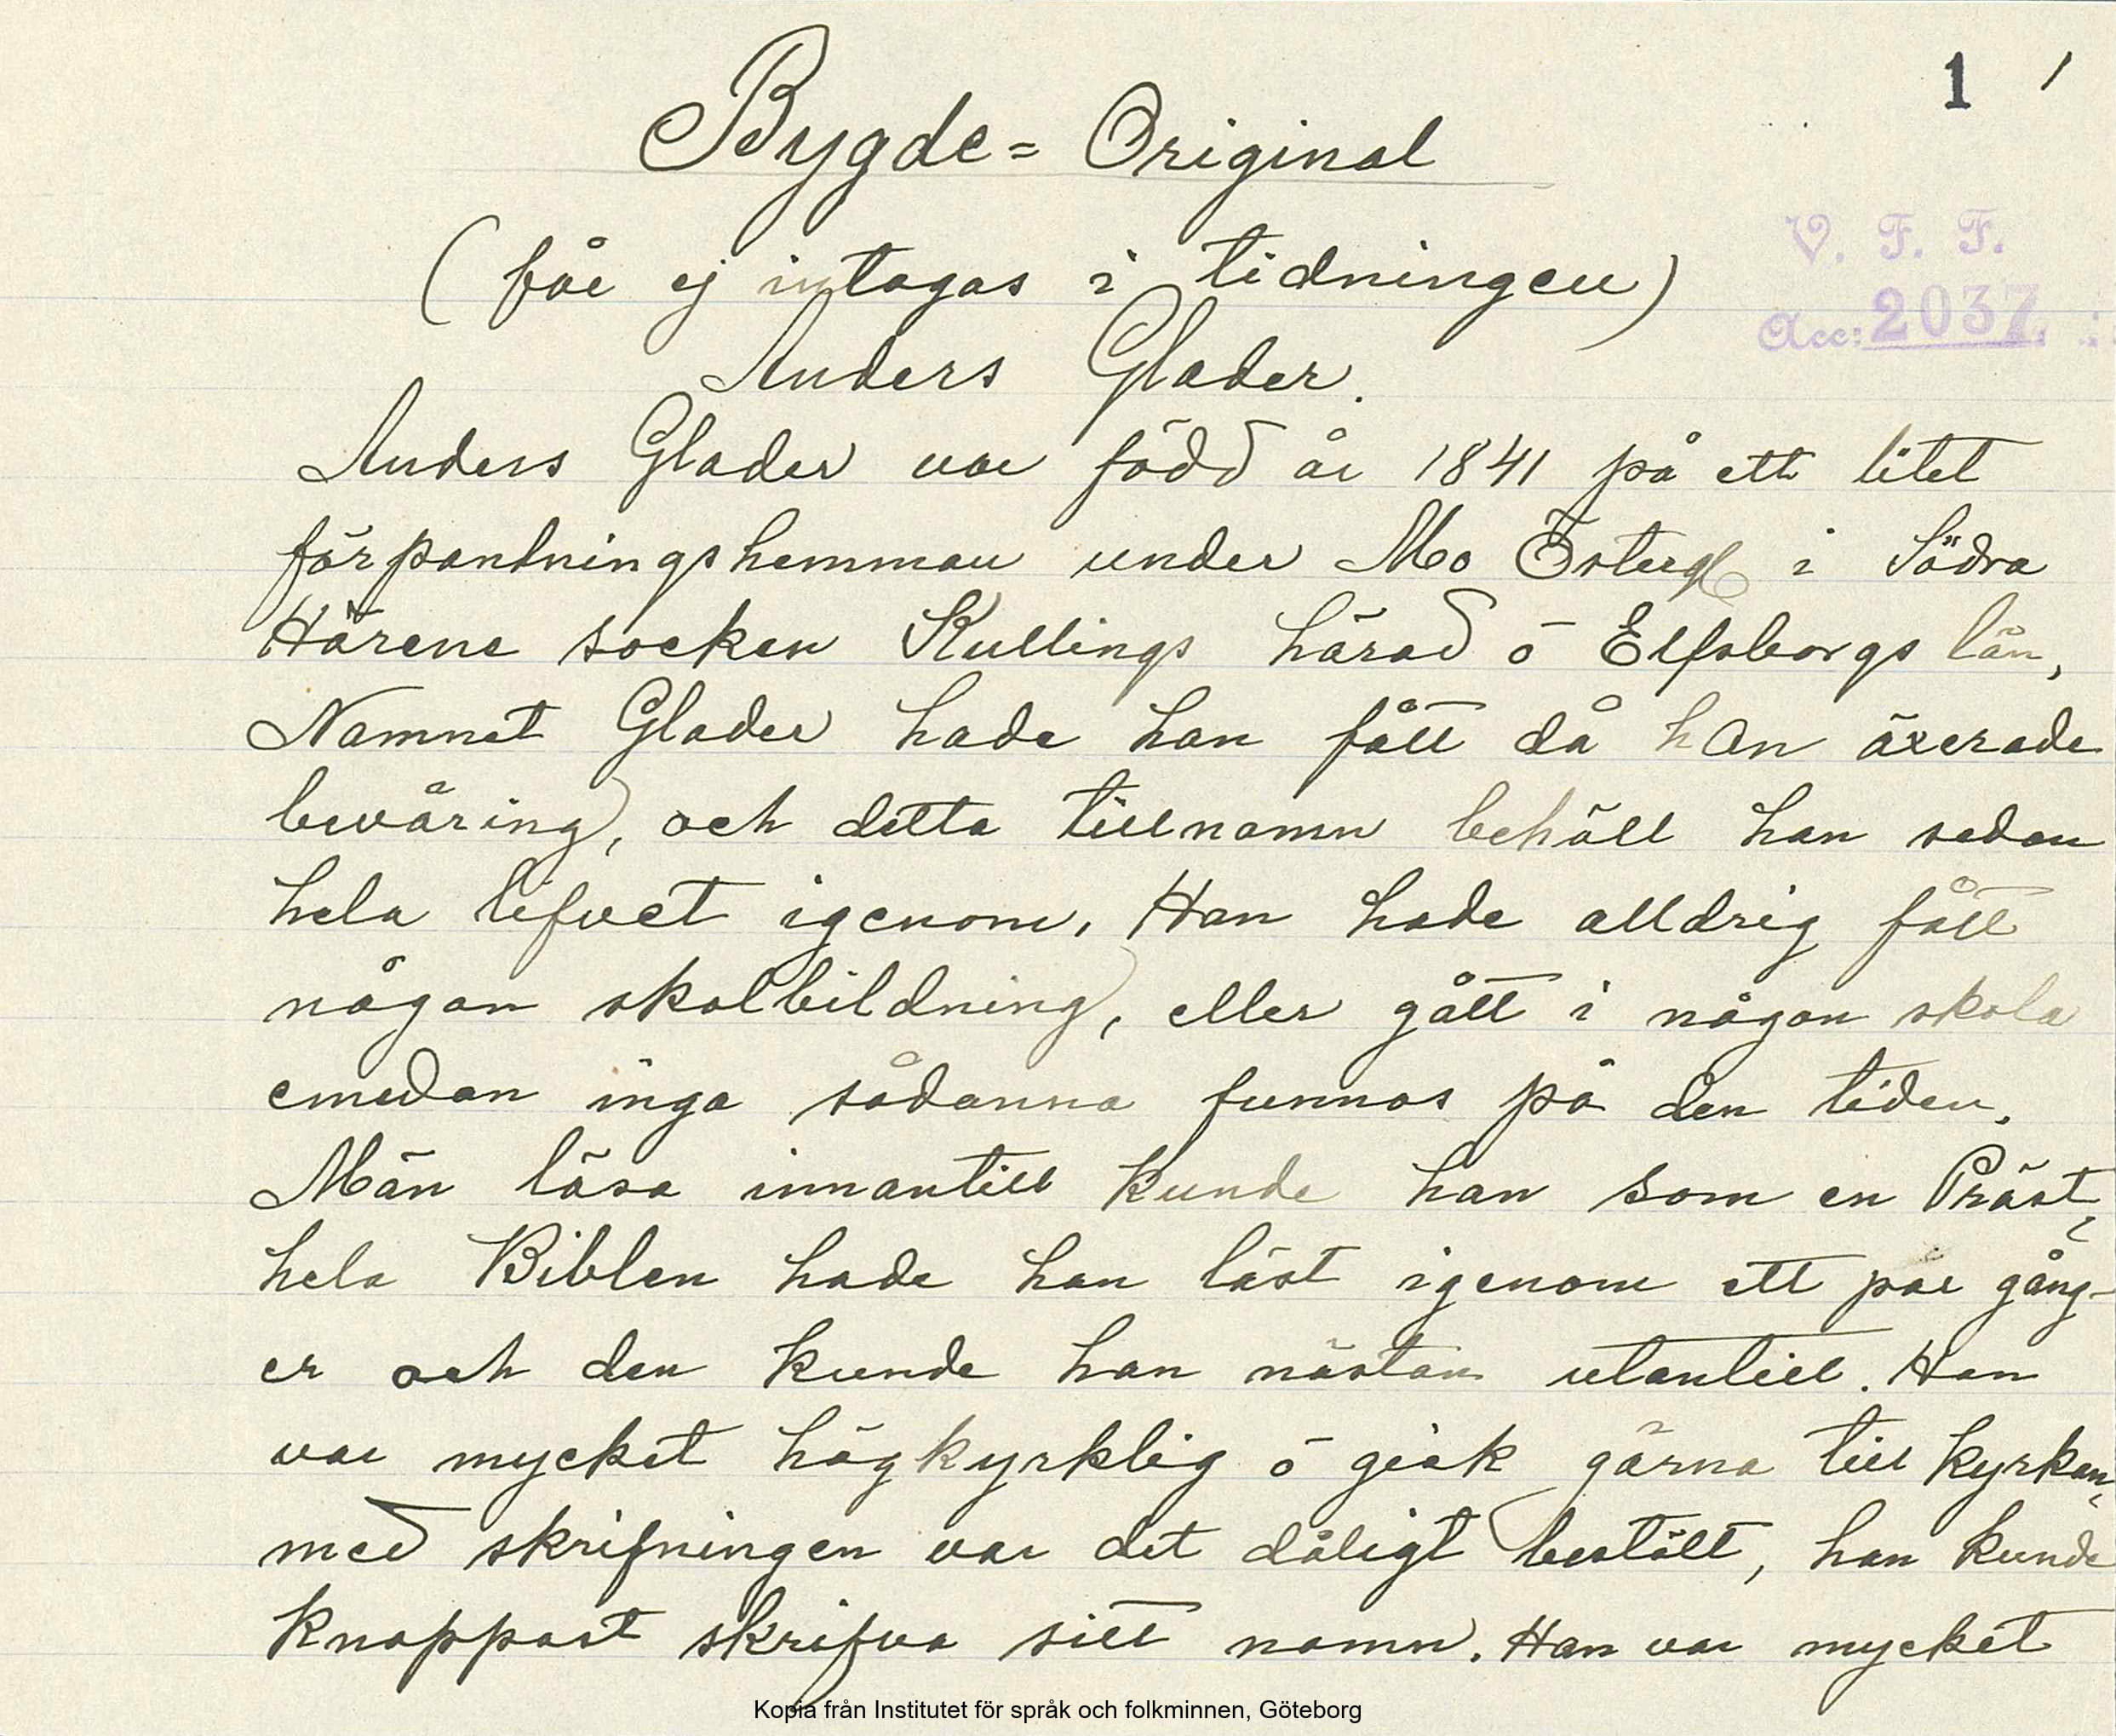 1 1
Bygde= Original
(får ej intagas i tidningen)
V. F. F.
Acc: 2037
Anders Glader.
Anders Glader var född år 1841 på ett litet
förpantningshemman under Mo Östergl i Södra
Härene socken Kullings härad ö Elfsborgs län,
Namnet Glader hade han fått då han äxerade
beväring, och detta tillnamn behöll han sedan
hela lifvet igenom. Han hade alldrig fått
någon skolbildning, eller gått i någon skola
emedan inga sådanna funnos på den tiden.
Män läsa innantill kunde han som en Präst,
hela Biblen hade han läst igenom ett par gång-
er och den kunde han nästan utantill. Han
var mycket högkyrklig ö gick gärna till kyrkan,
med skrifningen var det dåligt bestält, han kunde
knappast skrifva sitt namn. Han var mycket
Kopia från Institutet för språk och folkminnen, Göteborg